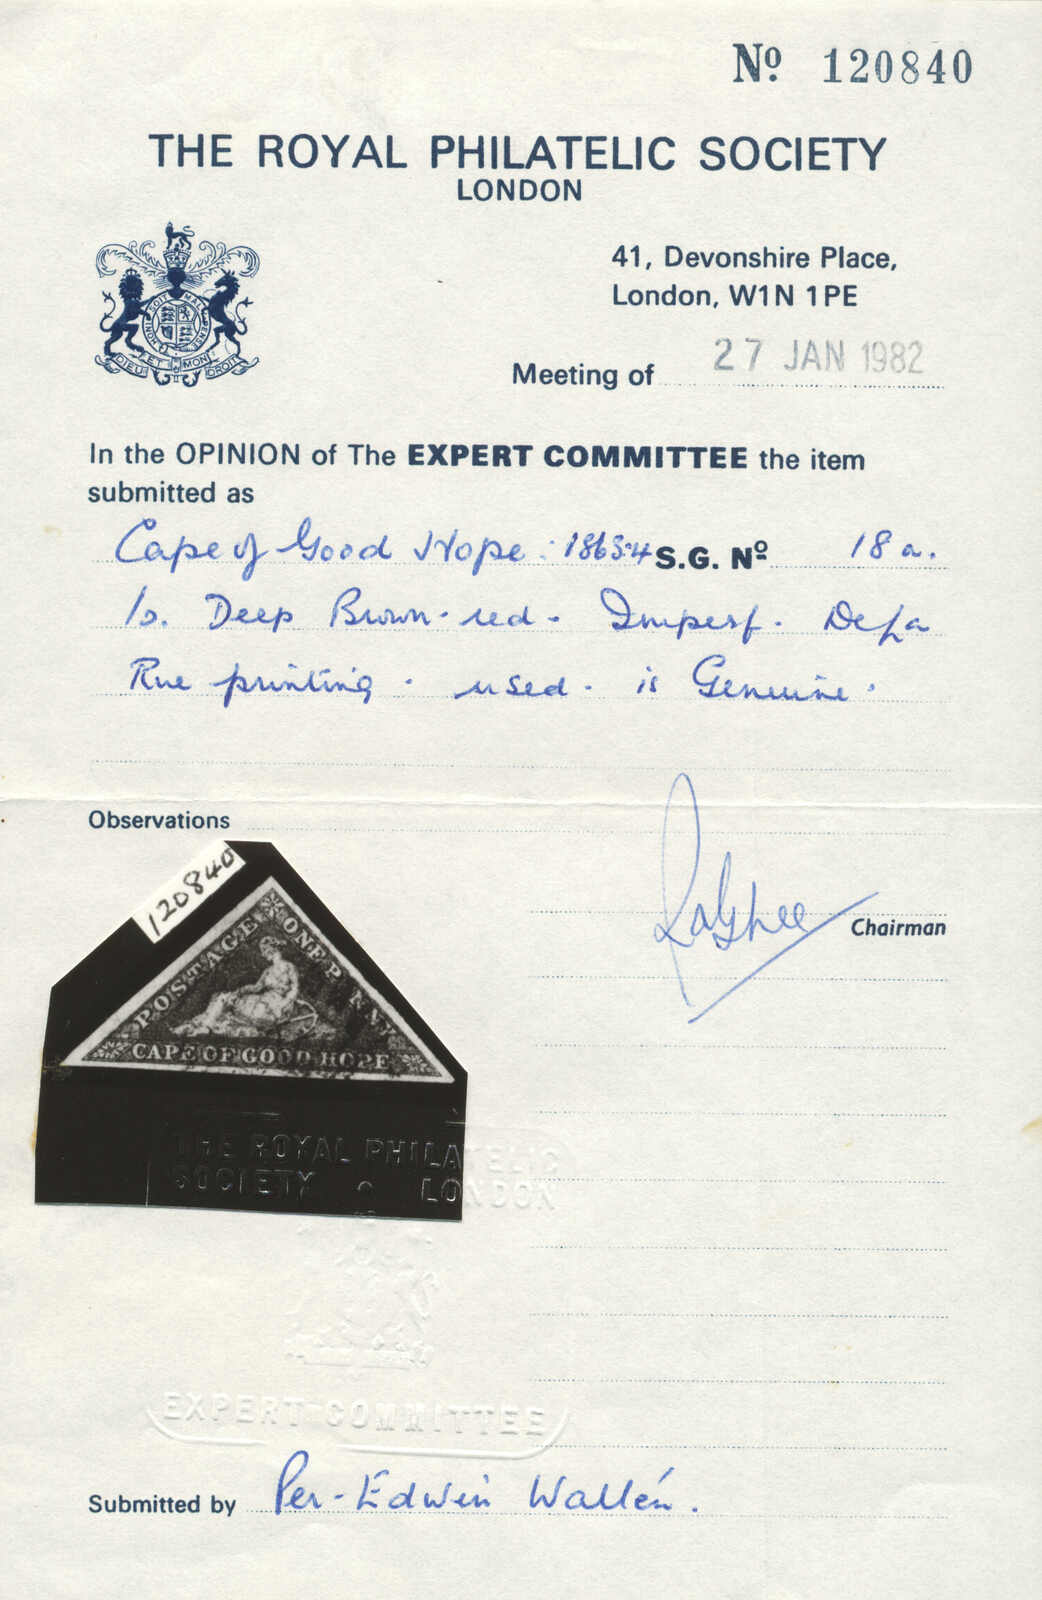 Nº 120840
THE ROYAL PHILATELIC SOCIETY
LONDON
41, Devonshire Place,
London, W1N 1PE
HONI SOIT MAL PENSE
DIEU ET MON DROIT
Meeting of 27 JAN 1982
In the OPINION of The EXPERT COMMITTEE the item
submitted as
Cape of Good Hope : 1863-4 S.G. Nº 18 a.
1d. Deep Brown-red - Imperf. De La
Rue printing - used - is Genuine.
Observations
120840
POSTAGE ONE PENNY
CAPE OF GOOD HOPE
Chairman
THE ROYAL PHILATELIC
SOCIETY LONDON
EXPERT COMMITTEE
Submitted by Per-Edwin Wallén.